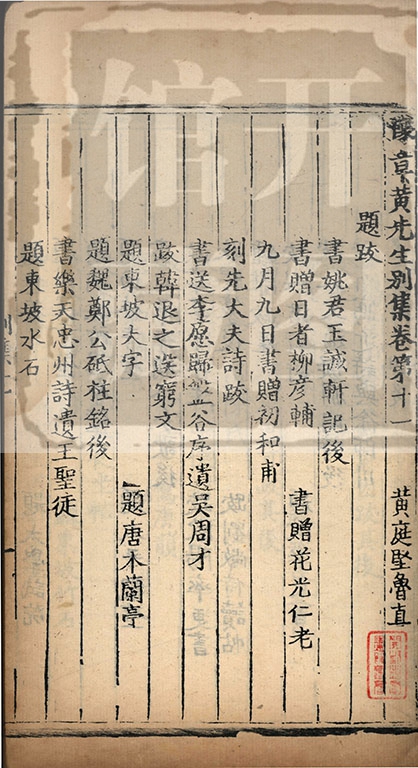 豫章黃先生別集卷第十一
黃庭堅魯直
題跋
書姚君玉誠軒記後
書贈日者柳彥輔
書贈花光仁老
九月九日書贈初和甫
刻先大夫詩跋
書送李愿歸盤谷序遺吳周才
跋韓退之送窮文
題東坡大字
題唐本蘭亭
題魏鄭公砥柱銘後
書樂天忠州詩遺王聖徒
題東坡水石
开
馆